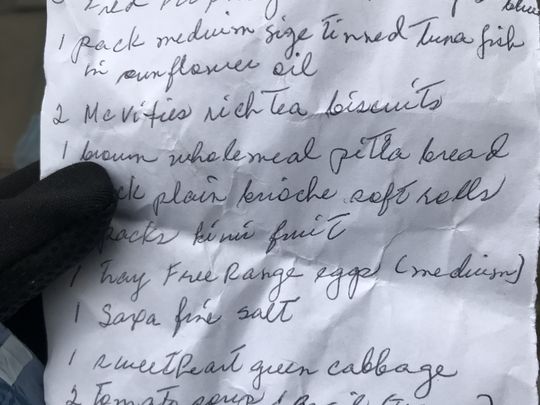 1 pack medium size tinned tuna fish
in sunflower oil
2 McVities rich Tea biscuits
1 brown wholemeal pitta bread
plain brioche soft rolls
packs kiwi fruit
1 tray Free Range eggs (medium)
1 Saxa fine salt
1 sweetheart green cabbage
2 tomato soup